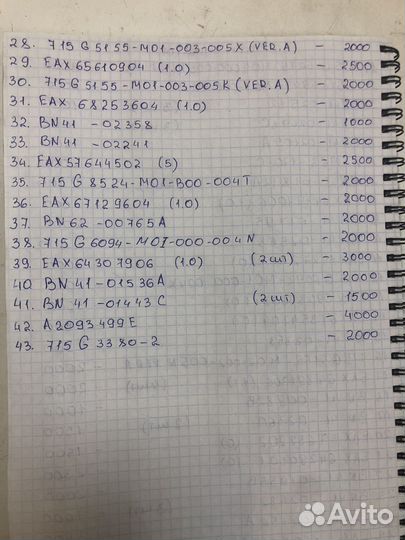 28. 715G5155-M01-003-005X (VER.A) - 2000
29. EAX65610904 (1.0) - 2500
30. 715G5155-M01-003-005K (VER.A) - 2000
31. EAX 68253604 (1.0) - 2000
32. BN41 -02358 - 1000
33. BN41 -02241 - 2000
34. EAX57644502 (5) - 2500
35. 715G8524-M01-B00-004T - 2000
36. EAX67129604 (1.0) - 2000
37. BN62-00765A - 2000
38. 715G6094-M0I-000-004N - 2000
39. EAX64307906 (1.0) (2шт) - 3000
40. BN41-01536A - 2000
41. BN 41-01443C (2шт) - 1500
42. A2093499E - 4000
43. 715G3380-2 - 2000
Avito